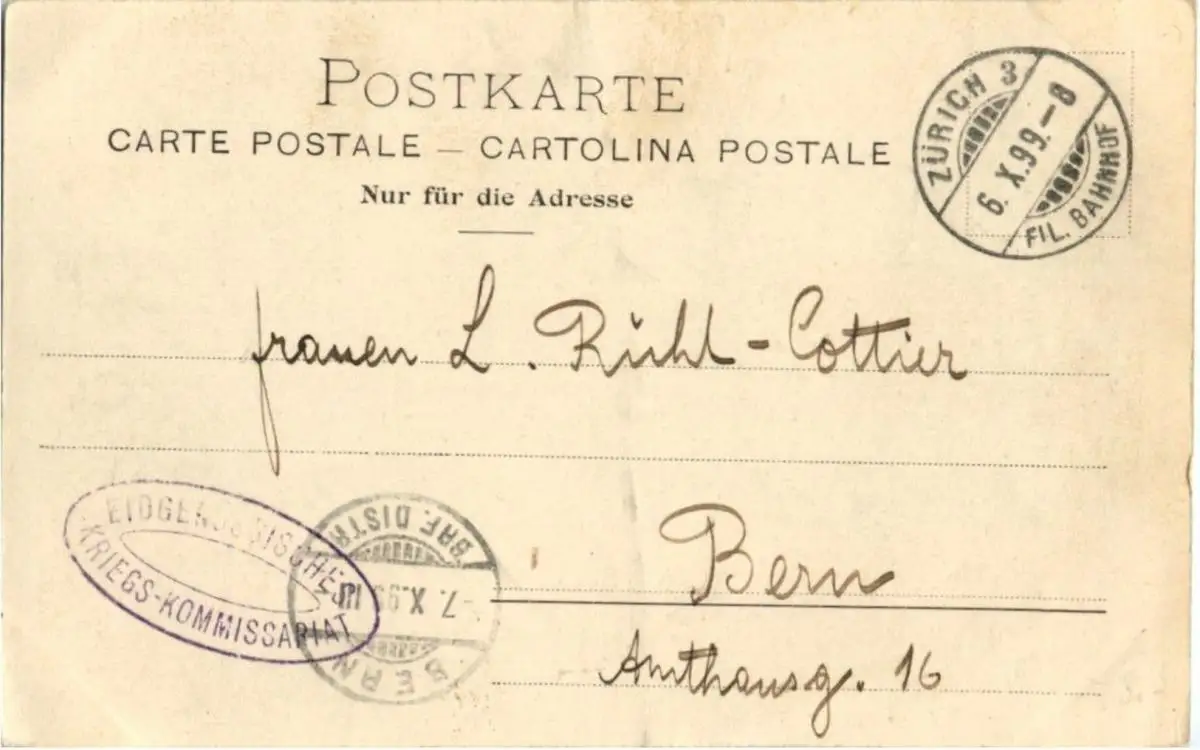 POSTKARTE
CARTE POSTALE – CARTOLINA POSTALE
Nur für die Adresse
ZÜRICH 3
6. X. 99. – 8
FIL. BAHNHOF
frauen L. Rühl-Cottier
Bern
Amthausg. 16
EIDGENÖSSISCHES
KRIEGS-KOMMISSARIAT
BERN
7. X. 99 III
BRF. DISTR